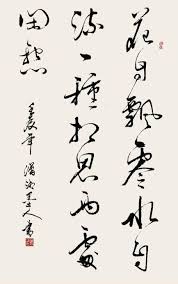 花自飄零水自
流一種相思兩處
閑愁
壬辰年 人書